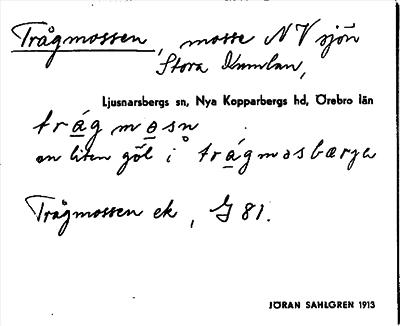 Trågmossen, mosse NV sjön
Stora Kumlan,
Ljusnarsbergs sn, Nya Kopparbergs hd, Örebro län
trågmosn
en liten göl i trågmosbærjə
Trågmossen ek, G 81.
JÖRAN SAHLGREN 1913